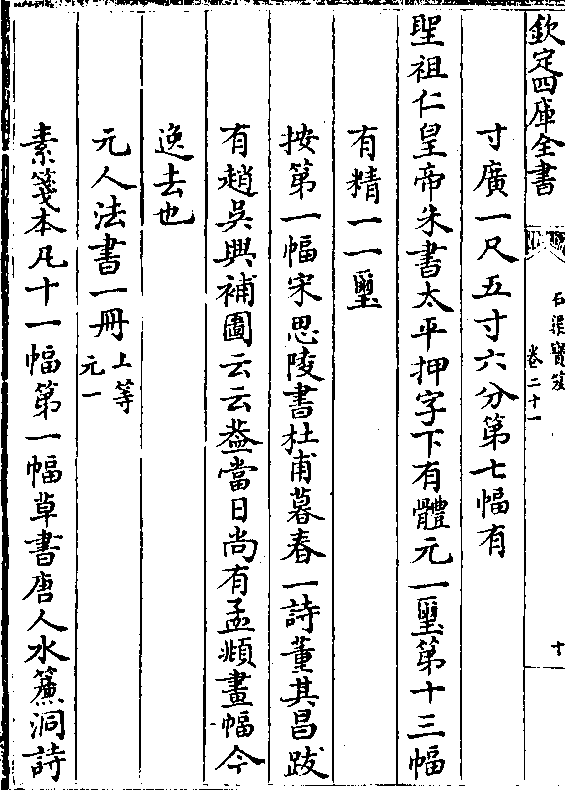 欽定四庫全書
石渠寶笈
卷二十一
十
寸廣一尺五寸六分第七幅有
聖祖仁皇帝朱書太平押字下有體元一璽第十三幅
有精一一璽
按第一幅宋思陵書杜甫暮春一詩董其昌跋
有趙吳興補圖云云葢當日尚有孟頫畫幅今
逸去也
元人法書一冊上等
元一
素箋本凡十一幅第一幅草書唐人水簾洞詩